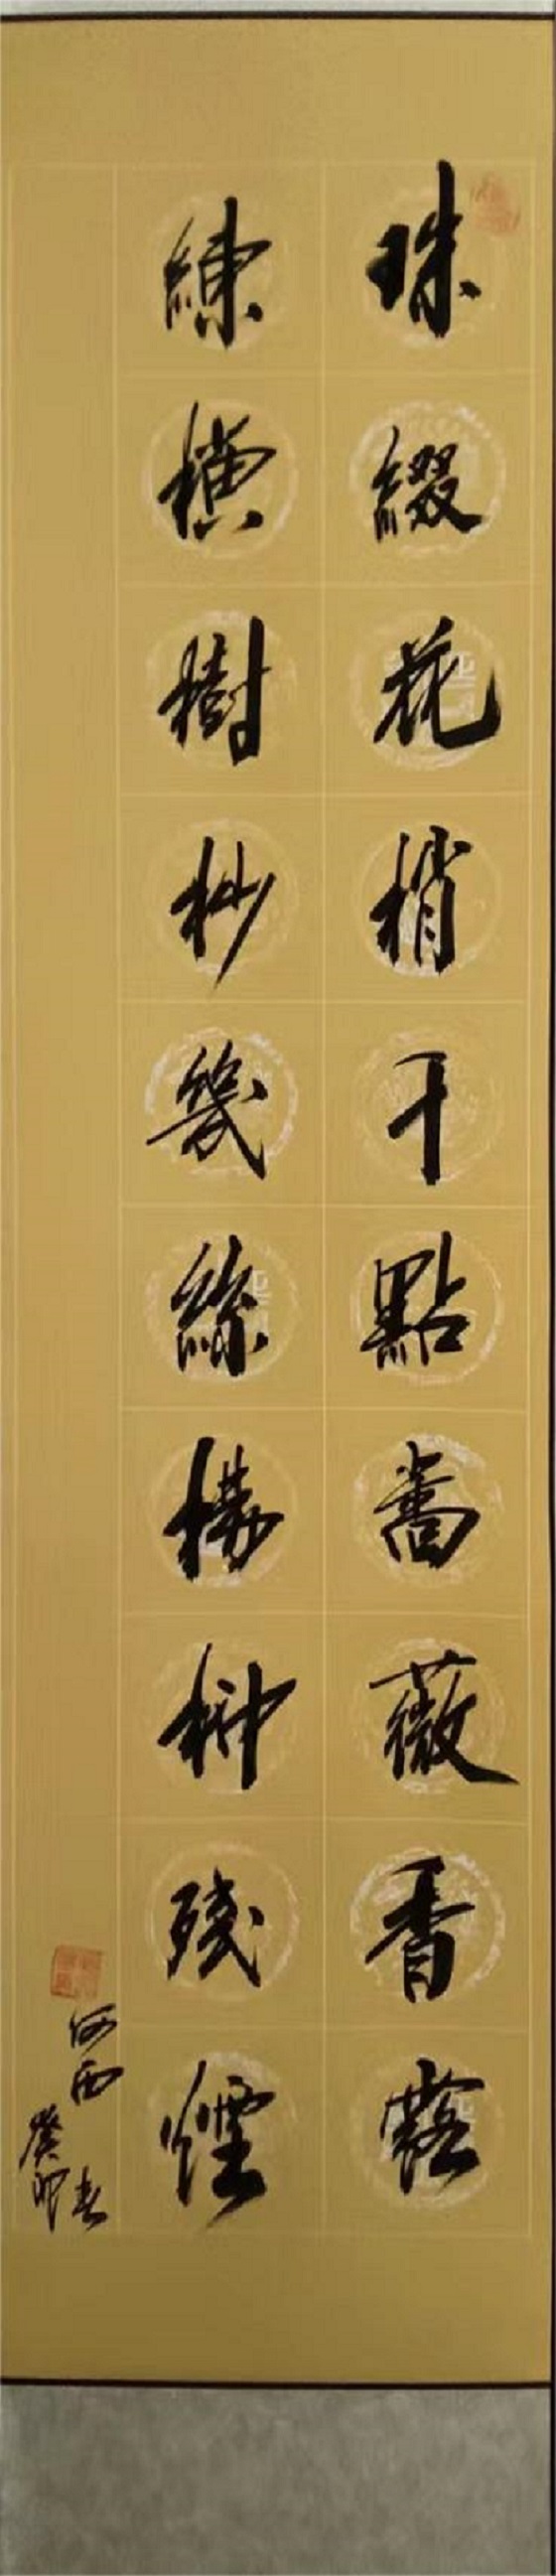 珠綴花梢千點薔薇香露
練橫樹杪幾絲楊柳殘煙
癸卯
春